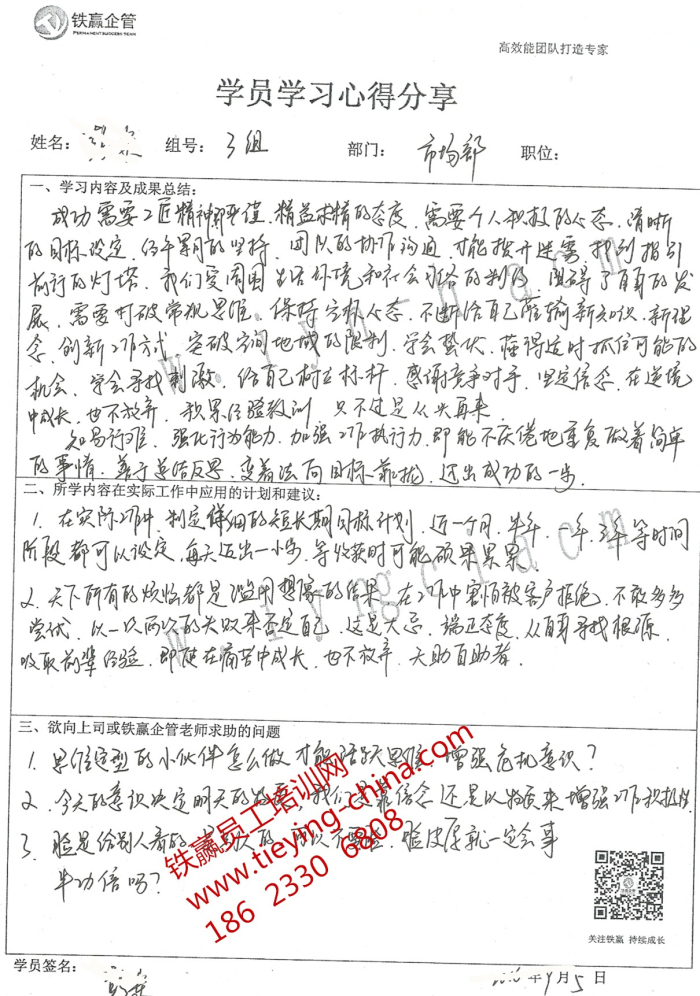 铁赢企管
PERMANENT SUCCESS TEAM
高效能团队打造专家
学员学习心得分享
姓名： 组号：3组 部门：市场部 职位：
一、学习内容及成果总结：
成功需要工匠精神 精益求精的态度、需要个人积极的心态、清晰
的目标设定、经年累月的坚持、团队的协作沟通，才能拨开迷雾，找到指引
前行的灯塔。我们受周围生活环境和社会网络的制约，阻碍了自身的发
展，需要打破常规思维，保持空杯心态，不断给自己灌输新知识、新理
念，创新工作方式，突破空间地域的限制，学会蛰伏，懂得适时抓住可能的
机会，学会寻找刺激，给自己树立标杆，感谢竞争对手，坚定信念，在逆境
中成长，也不放弃，积累经验教训，只不过是从头再来。
知易行难，强化行为能力，加强工作执行力，即能不厌倦地重复做着简单
的事情，善于总结反思，变着法向目标靠拢，迈出成功的一步。
二、所学内容在实际工作中应用的计划和建议：
1. 在实际工作中，制定详细的短长期目标计划，近一个月、半年、一年、三年等时间
阶段都可以设定，每天迈出一小步，等收获时可能硕果累累
2. 天下所有的烦恼都是滥用想象的结果，在工作中害怕被客户拒绝，不敢多多
尝试，以一次两次的失败来否定自己，这是大忌，端正态度，从自身寻找根源，
吸取前辈经验，即使在痛苦中成长，也不放弃，天助自助者。
三、欲向上司或铁赢企管老师求助的问题
1. 思维定型的小伙伴怎么做才能活跃思维，增强危机意识？
2. 今天的意识决定明天的 我们 靠信念还是以物质来增强工作积极性
3. 脸是给别人看的 脸皮厚就一定会事
半功倍吗？
铁赢员工培训网
www.tieying-china.com
186 2330 6808
关注铁赢 持续成长
学员签名：
年9月5日